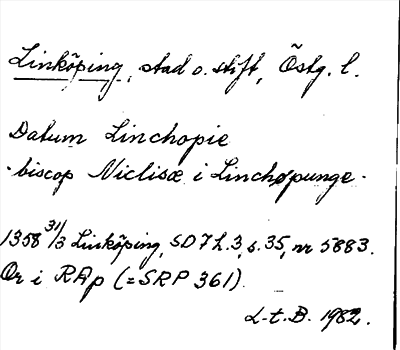 Linköping, stad o. stift, Östg. l.
Datum Linchopie
- biscop Niclisæ i Linchøpunge -
1358 31/3 Linköping, SD 7 h. 3, s. 35, nr 5883.
Or i RAp (= SRP 361)
L-t. B. 1982.